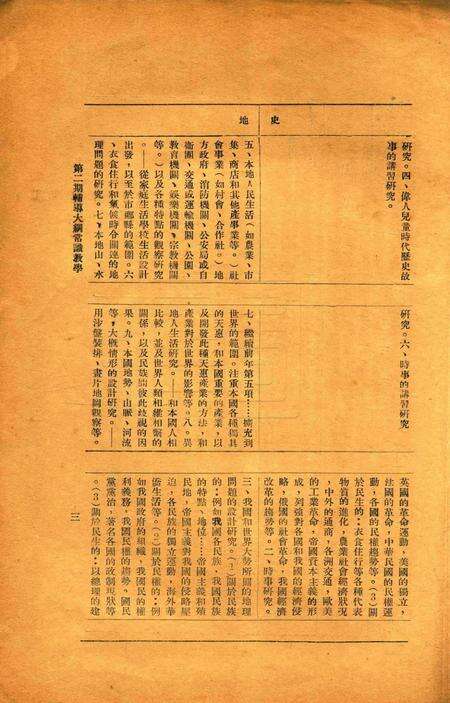 史
研究。四、偉人兒童時代歷史故
事的講習研究。
研究。六、時事的講習研究
英國的革命運動，美國的獨立，
法國的革命，中華民國的民權運
動，各國的民權趨勢等。（3）關
於民生的：衣食住行等各種代表
物質的進化，農業社會經濟狀況
，中外的通商，各洲交通，歐美
的工業革命，帝國資本主義的形
成，列強對各國和我國的經濟侵
略，俄國的社會革命，我國經濟
改革的趨勢等。二、時事研究。
地
五、本地人民生活（如農業、市
集、商店和其他產事業等。）社
會事業（如村會、合作社。）地
方政府、消防機關、公安局或自
衛團、交通或運輸機關、公園、
教育機關、娛樂機關、宗教機關
等。）以及各種特點的觀察研究
。——從家庭生活學校生活設計
出發，以至於市鄉縣的範圍。六
、衣食住行和氣候時令關連的地
理問題的研究。七、本地山、水
七、繼續前年第五項……擴充到
世界的範圍。注重本國各種獨具
的天惠，和本國重要的產業，以
及開發此種天惠產業的方法，和
產業對於世界的影響等。八、異
地人生活研究。——和本國人相
比較，並及世界人類相維相繫的
關係，以及民族間彼此歧視的因
果。九、本國地勢、山脈、河流
等，大概情形的設計研究。——
用沙盤裝排、畫片地圖觀察等。
三、我國和世界大勢所關的地理
問題的設計研究。（1）關於民族
的：例如我國各民族，我國民族
的特點、地位……帝國主義和殖
民地，帝國主義對我國的侵略壓
迫，各民族的獨立運動，海外華
僑生活等。（2）關於民權的：例
如我國政府的組織，我國民的權
利義務，我國民權的趨勢，國民
黨黨治，著名各國的政制現狀等
。（3）關於民生的：以總理的建
第二期輔導大綱常識教學
三